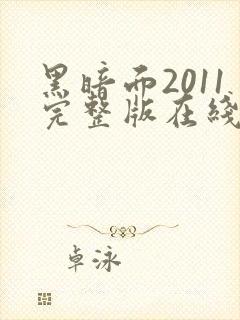 黑暗而2011
完整版在线
卓泳